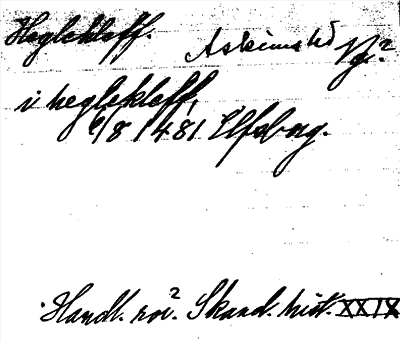 Heglekleff. Askims hd Vg.²
i heglekleff,
6/8 1481 Elfsborg.
Handl. rör² Skand. hist. XXIX